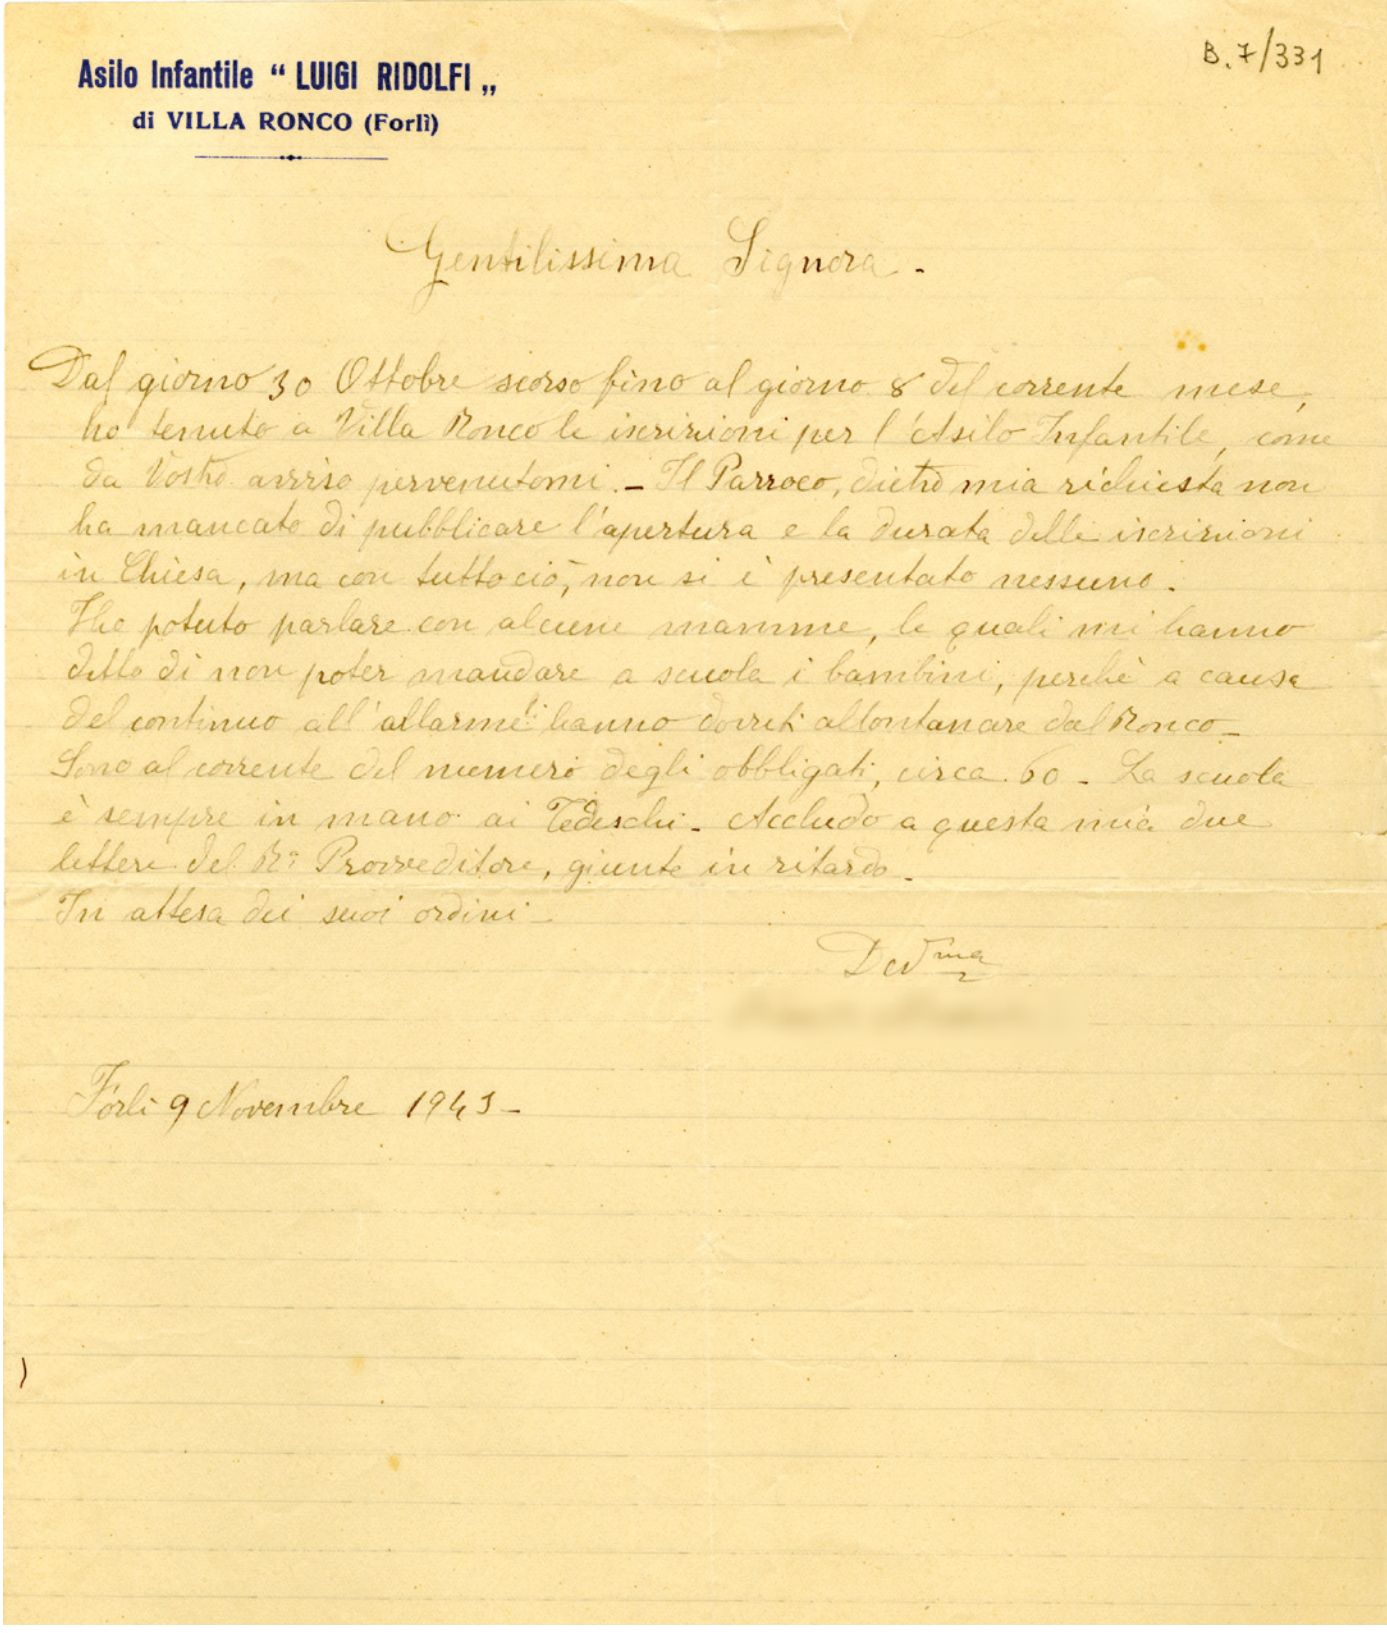 Asilo Infantile “ LUIGI RIDOLFI „
di VILLA RONCO (Forlì)
B. 7/331
Gentilissima Signora -
Dal giorno 30 Ottobre scorso fino al giorno 8 del corrente mese,
ho tenuto a Villa Ronco le iscrizioni per l'Asilo Infantile, come
da Vostro avviso pervenutomi. - Il Parroco, dietro mia richiesta non
ha mancato di pubblicare l'apertura e la durata delle iscrizioni
in Chiesa, ma con tutto ciò, non si è presentato nessuno.
Ho potuto parlare con alcune mamme, le quali mi hanno
detto di non poter mandare a scuola i bambini, perchè a causa
del continuo all'allarme li hanno dovuti allontanare dal Ronco -
Sono al corrente del numero degli obbligati, circa 60 - La scuola
è sempre in mano ai Tedeschi - Accludo a questa mia due
lettere del R° Provveditore, giunte in ritardo -
In attesa dei suoi ordini -
Dev ma
Forlì 9 Novembre 1943 -